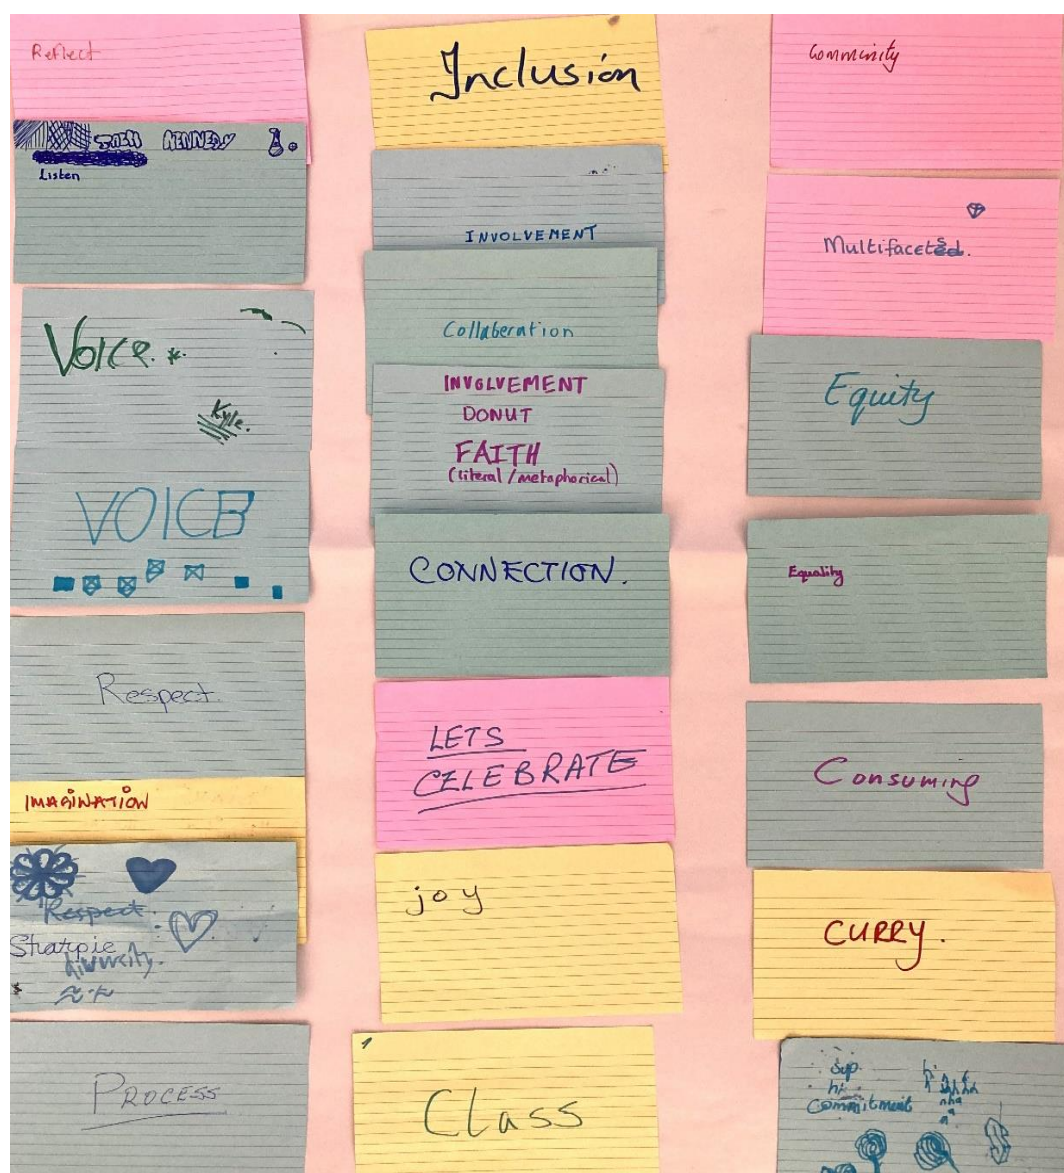 Reflect
KENNEDY
Listen
Voice.*
Kyle.
VOICE
Respect
IMAGINATION
Respect
Sharpie
PROCESS
Inclusion
INVOLVEMENT
Collaberation
INVOLVEMENT
DONUT
FAITH
(literal/metaphorical)
CONNECTION.
LETS
CELEBRATE
joy
Class
Community
Multifaceted.
Equity
Equality
Consuming
CURRY.
Sup
hi
Commitment